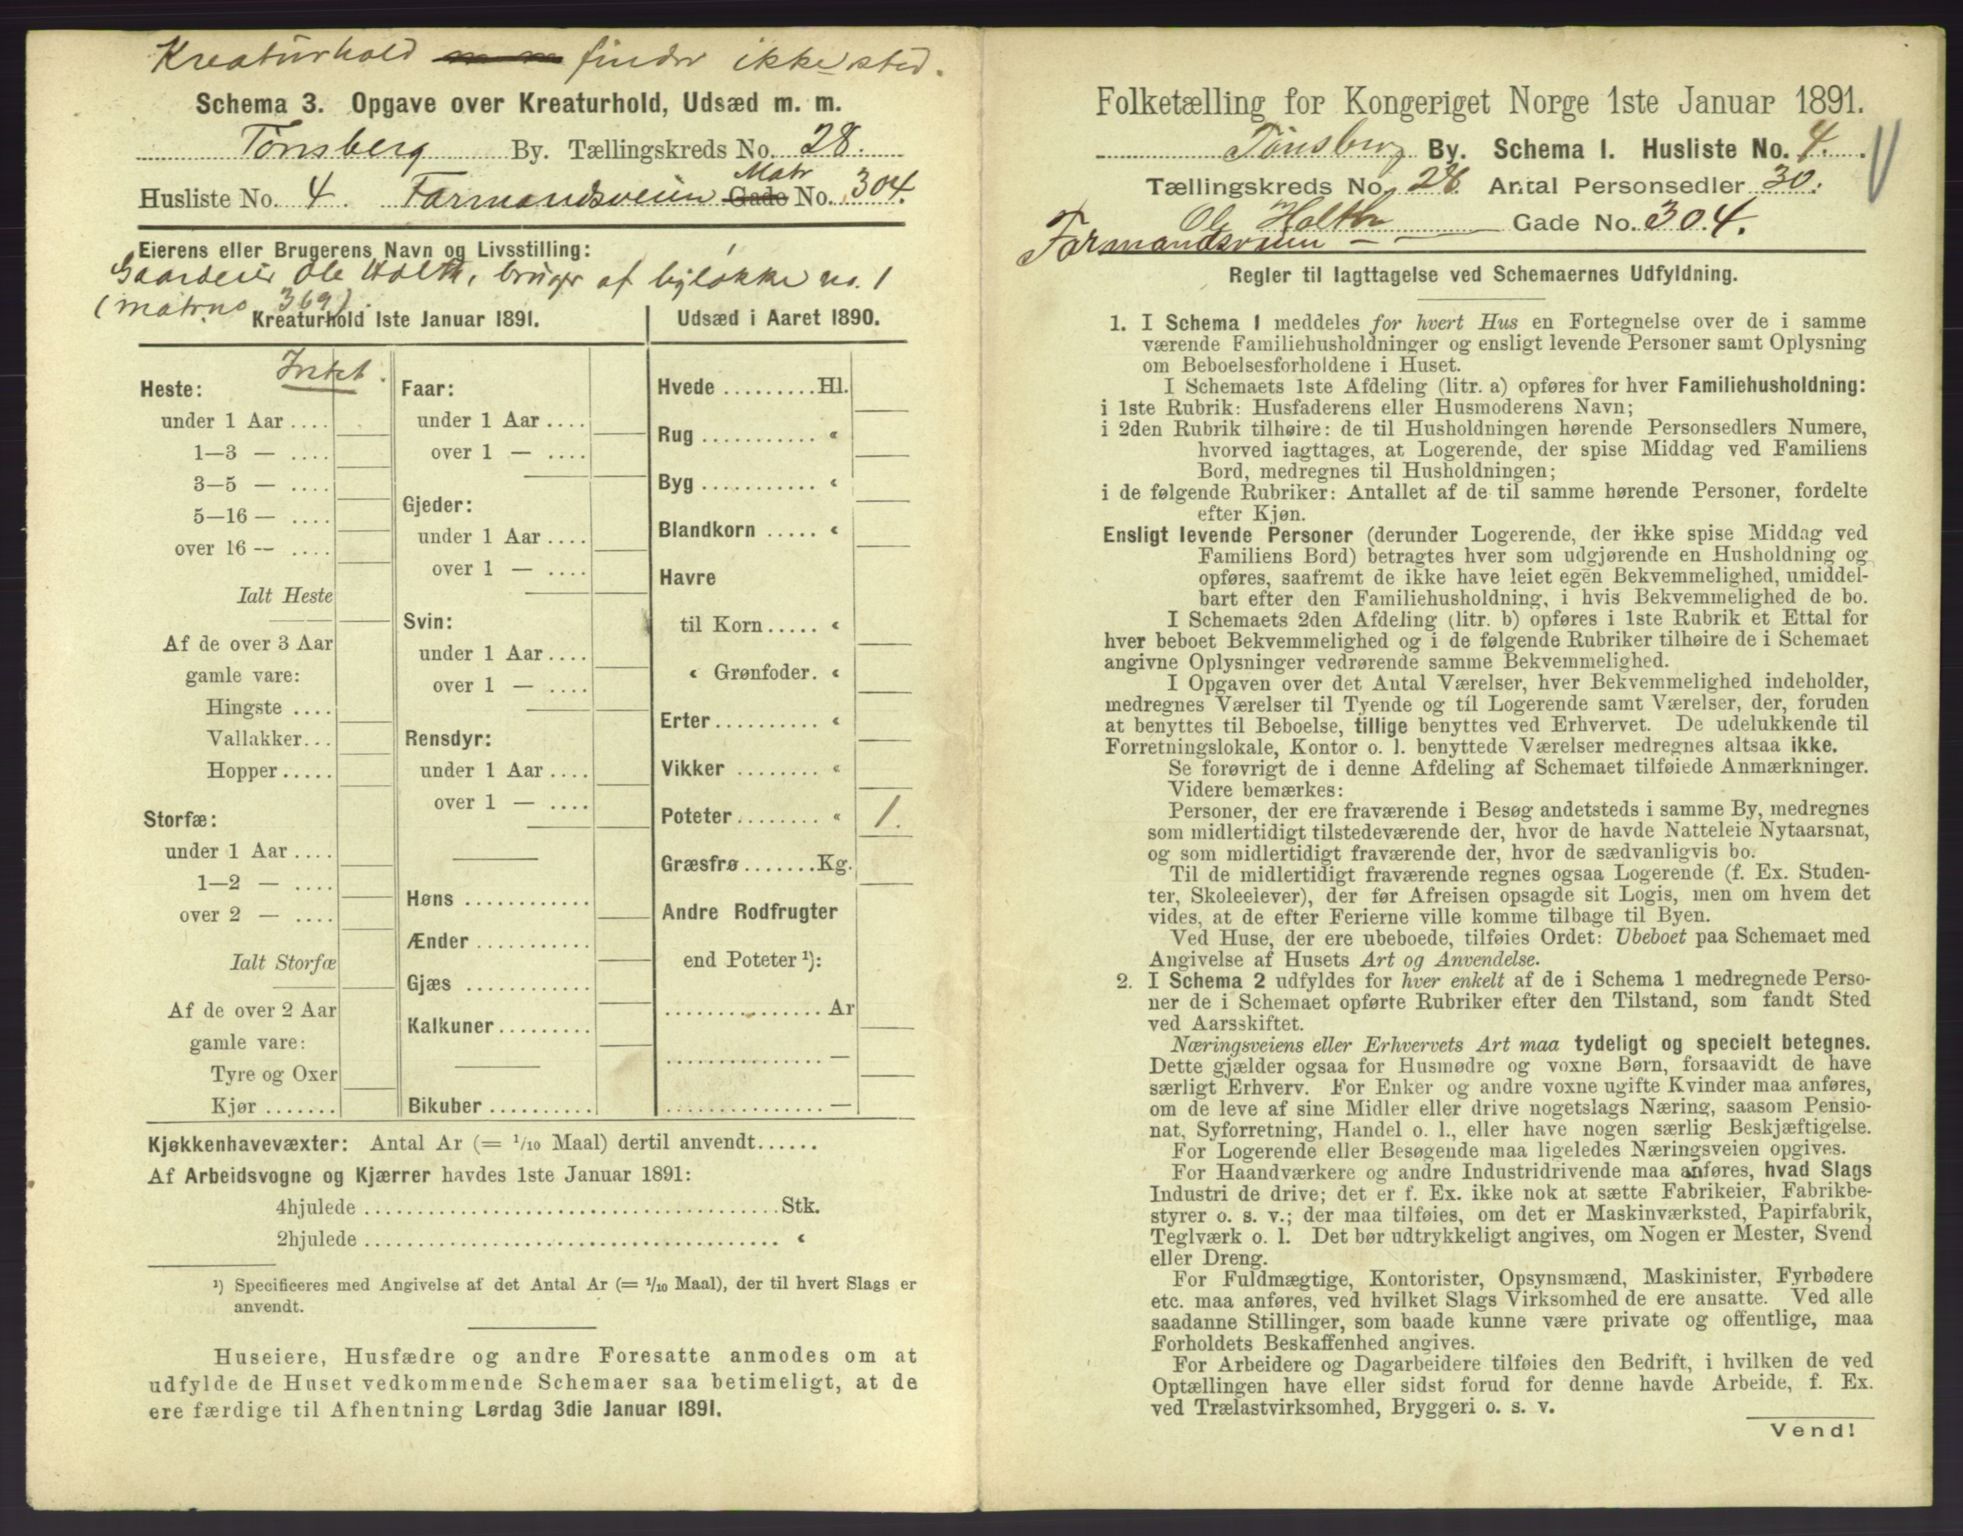 Kreaturhold finder ikke sted.
Schema 3. Opgave over Kreaturhold, Udsæd m. m.
Tønsberg By. Tællingskreds No. 28.
Matr
Husliste No. 4. Farmandsveien Gade No. 304.
Eierens eller Brugerens Navn og Livsstilling:
Gaardeier Ole Holth, bruger af byløkke no. 1
(matr.no 369).
Kreaturhold 1ste Januar 1891.
Intet.
Heste:
under 1 Aar ....
1—3 — ....
3—5 — ....
5—16 — ....
over 16 — ....
Ialt Heste
Af de over 3 Aar
gamle vare:
Hingste ....
Vallakker...
Hopper.....
Storfæ:
under 1 Aar ....
1—2 — ....
over 2 — ....
Ialt Storfæ
Af de over 2 Aar
gamle vare:
Tyre og Oxer
Kjør .......
Faar:
under 1 Aar ....
over 1 — ....
Gjeder:
under 1 Aar ....
over 1 — ....
Svin:
under 1 Aar ....
over 1 — ....
Rensdyr:
under 1 Aar ....
over 1 — ....
Høns ............
Ænder ...........
Gjæs ............
Kalkuner .........
Bikuber ..........
Udsæd i Aaret 1890.
Hvede .........Hl.
Rug ........... «
Byg ........... «
Blandkorn ..... «
Havre
til Korn ..... «
« Grønfoder. «
Erter .......... «
Vikker ........ «
Poteter ........ « 1.
Græsfrø .......Kg.
Andre Rodfrugter
end Poteter ¹):
............... Ar
............... —
............... —
Kjøkkenhavevæxter: Antal Ar (= 1/10 Maal) dertil anvendt......
Af Arbeidsvogne og Kjærrer havdes 1ste Januar 1891:
4hjulede ....................................... Stk.
2hjulede ....................................... «
¹) Specificeres med Angivelse af det Antal Ar (= 1/10 Maal), der til hvert Slags er
anvendt.
Huseiere, Husfædre og andre Foresatte anmodes om at
udfylde de Huset vedkommende Schemaer saa betimeligt, at de
ere færdige til Afhentning Lørdag 3die Januar 1891.
Folketælling for Kongeriget Norge 1ste Januar 1891.
Tønsberg By. Schema 1. Husliste No. 4.
Tællingskreds No. 28. Antal Personsedler 30.
Ole Holth Gade No. 304.
Farmandsveien
Regler til Iagttagelse ved Schemaernes Udfyldning.
1. I Schema 1 meddeles for hvert Hus en Fortegnelse over de i samme
værende Familiehusholdninger og ensligt levende Personer samt Oplysning
om Beboelsesforholdene i Huset.
I Schemaets 1ste Afdeling (litr. a) opføres for hver Familiehusholdning:
i 1ste Rubrik: Husfaderens eller Husmoderens Navn;
i 2den Rubrik tilhøire: de til Husholdningen hørende Personsedlers Numere,
hvorved iagttages, at Logerende, der spise Middag ved Familiens
Bord, medregnes til Husholdningen;
i de følgende Rubriker: Antallet af de til samme hørende Personer, fordelte
efter Kjøn.
Ensligt levende Personer (derunder Logerende, der ikke spise Middag ved
Familiens Bord) betragtes hver som udgjørende en Husholdning og
opføres, saafremt de ikke have leiet egen Bekvemmelighed, umiddel-
bart efter den Familiehusholdning, i hvis Bekvemmelighed de bo.
I Schemaets 2den Afdeling (litr. b) opføres i 1ste Rubrik et Ettal for
hver beboet Bekvemmelighed og i de følgende Rubriker tilhøire de i Schemaet
angivne Oplysninger vedrørende samme Bekvemmelighed.
I Opgaven over det Antal Værelser, hver Bekvemmelighed indeholder,
medregnes Værelser til Tyende og til Logerende samt Værelser, der, foruden
at benyttes til Beboelse, tillige benyttes ved Erhvervet. De udelukkende til
Forretningslokale, Kontor o. l. benyttede Værelser medregnes altsaa ikke.
Se forøvrigt de i denne Afdeling af Schemaet tilføiede Anmærkninger.
Videre bemærkes:
Personer, der ere fraværende i Besøg andetsteds i samme By, medregnes
som midlertidigt tilstedeværende der, hvor de havde Natteleie Nytaarsnat,
og som midlertidigt fraværende der, hvor de sædvanligvis bo.
Til de midlertidigt fraværende regnes ogsaa Logerende (f. Ex. Studen-
ter, Skoleelever), der før Afreisen opsagde sit Logis, men om hvem det
vides, at de efter Ferierne ville komme tilbage til Byen.
Ved Huse, der ere ubeboede, tilføies Ordet: Ubeboet paa Schemaet med
Angivelse af Husets Art og Anvendelse.
2. I Schema 2 udfyldes for hver enkelt af de i Schema 1 medregnede Perso-
ner de i Schemaet opførte Rubriker efter den Tilstand, som fandt Sted
ved Aarsskiftet.
Næringsveiens eller Erhvervets Art maa tydeligt og specielt betegnes.
Dette gjælder ogsaa for Husmødre og voxne Børn, forsaavidt de have
særligt Erhverv. For Enker og andre voxne ugifte Kvinder maa anføres,
om de leve af sine Midler eller drive nogetslags Næring, saasom Pensio-
nat, Syforretning, Handel o. l., eller have nogen særlig Beskjæftigelse.
For Logerende eller Besøgende maa ligeledes Næringsveien opgives.
For Haandværkere og andre Industridrivende maa anføres, hvad Slags
Industri de drive; det er f. Ex. ikke nok at sætte Fabrikeier, Fabrikbe-
styrer o. s. v.; der maa tilføies, om det er Maskinværksted, Papirfabrik,
Teglværk o. l. Det bør udtrykkeligt angives, om Nogen er Mester, Svend
eller Dreng.
For Fuldmægtige, Kontorister, Opsynsmænd, Maskinister, Fyrbødere
etc. maa anføres, ved hvilket Slags Virksomhed de ere ansatte. Ved alle
saadanne Stillinger, som baade kunne være private og offentlige, maa
Forholdets Beskaffenhed angives.
For Arbeidere og Dagarbeidere tilføies den Bedrift, i hvilken de ved
Optællingen have eller sidst forud for denne havde Arbeide, f. Ex.
ved Trælastvirksomhed, Bryggeri o. s. v.
Vend!